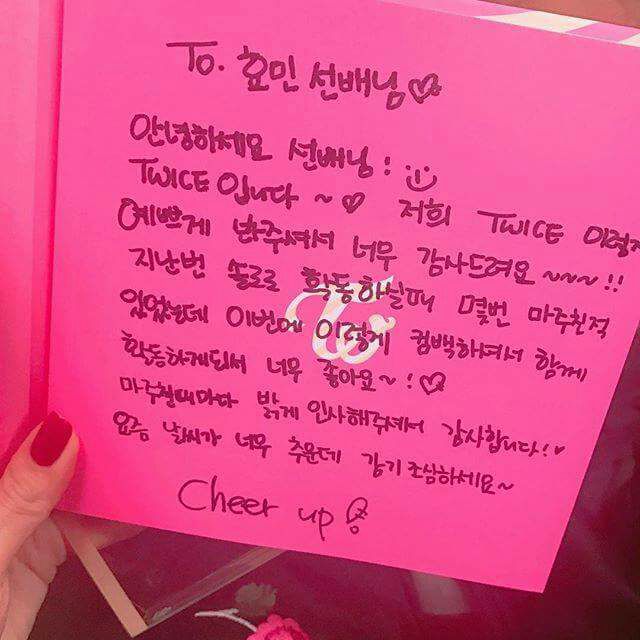 To. 효민 선배님♡
안녕하세요 선배님! :)
TWICE입니다 ~ ♡ 저희 TWICE 이렇게
예쁘게 봐주셔서 너무 감사드려요 ~~~ !!
지난번 솔로로 활동하실때 몇번 마주친적
있었는데 이번에 이렇게 컴백하셔서 함께
활동하게되서 너무 좋아요~!♡
마주칠때마다 밝게 인사해주셔서 감사합니다!♥
요즘 날씨가 너무 추운데 감기조심하세요~
Cheer up